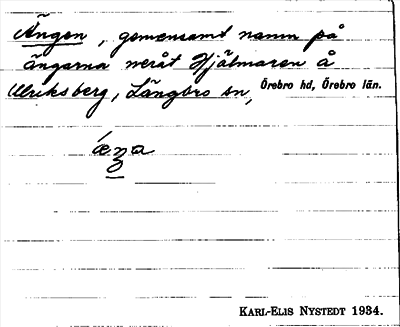 Ängen, gemensamt namn på
ängarna neråt Hjälmaren å
Ulriksberg, Längbro sn, Örebro hd, Örebro län.
KARL-ELIS NYSTEDT 1934.